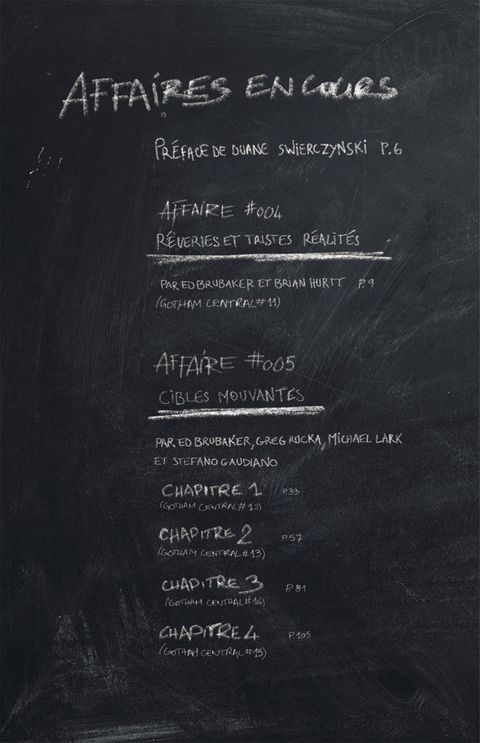 AFFAIRES EN COURS
PRÉFACE DE DUANE SWIERCZYNSKI P.6
AFFAIRE #004
RÊVERIES ET TRISTES RÉALITÉS
PAR ED BRUBAKER ET BRIAN HURTT P.9
(GOTHAM CENTRAL #11)
AFFAIRE #005
CIBLES MOUVANTES
PAR ED BRUBAKER, GREG RUCKA, MICHAEL LARK
ET STEFANO GAUDIANO
CHAPITRE 1 P.33
(GOTHAM CENTRAL #12)
CHAPITRE 2 P.57
(GOTHAM CENTRAL #13)
CHAPITRE 3 P.81
(GOTHAM CENTRAL #14)
CHAPITRE 4 P.105
(GOTHAM CENTRAL #15)